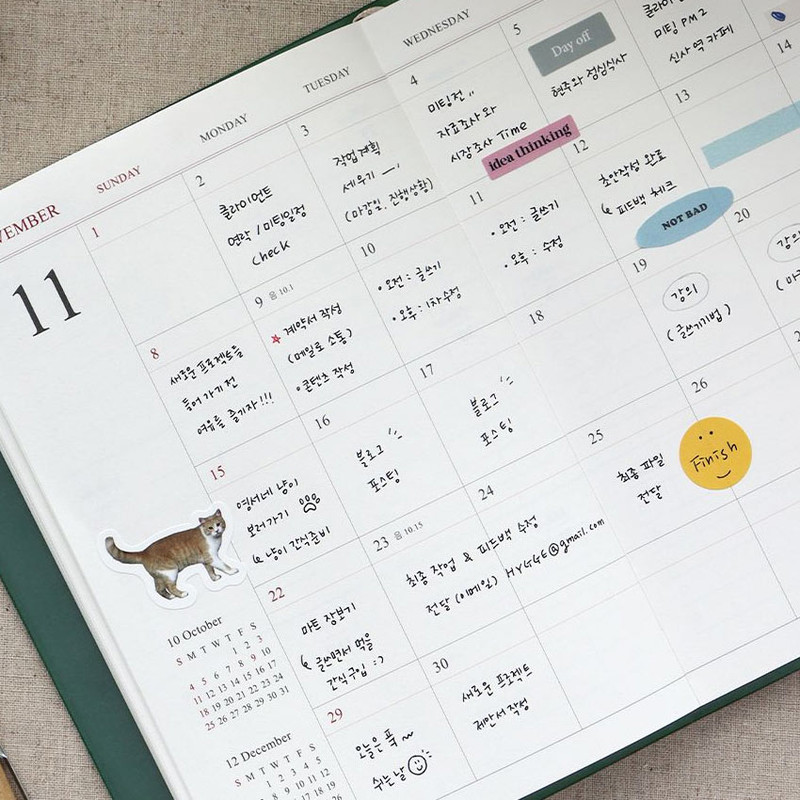 VEMBER
11
SUNDAY
MONDAY
TUESDAY
WEDNESDAY
1
2
클라이언트
연락 / 미팅일정
check
3
작업계획
세우기
(마감일, 진행상황)
4
미팅전
자료조사와
시장조사 Time
idea thinking
5
Day off
현주와 점심식사
미팅 PM 2
신사역 카페
8
새로운 프로젝트를
들어가기 전
여유를 즐기자!!!
9 음 10.1
계약서 작성
(메일로 소통)
• 콘텐츠 작성
10
• 오전 : 글쓰기
• 오후 : 1차수정
11
• 오전 : 글쓰기
• 오후 : 수정
12
초안작성 완료
피드백 체크
NOT BAD
13
14
15
영서네 냥이
보러가기
냥이 간식준비
16
블로그
포스팅
17
블로그
포스팅
18
19
강의
(글쓰기법)
20
22
마트 장보기
글쓰면서 먹을
간식구입 :)
23 음 10.15
최종 작업 & 피드백 수정
전달 (이메일) HYGGE@gmail.com
24
25
최종 파일
전달
26
Finish
29
오늘은 푹 ~
쉬는날
30
새로운 프로젝트
제안서 작성
10 October
S M T W T F S
1 2 3
4 5 6 7 8 9 10
11 12 13 14 15 16 17
18 19 20 21 22 23 24
25 26 27 28 29 30 31
12 December
S M T W T F S
1 2 3 4 5